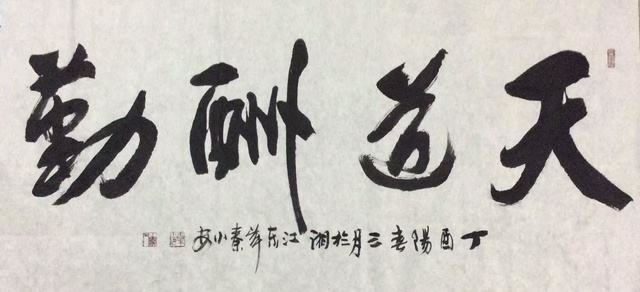 天道酬勤
丁酉陽春三月於湘江东岸秦小安